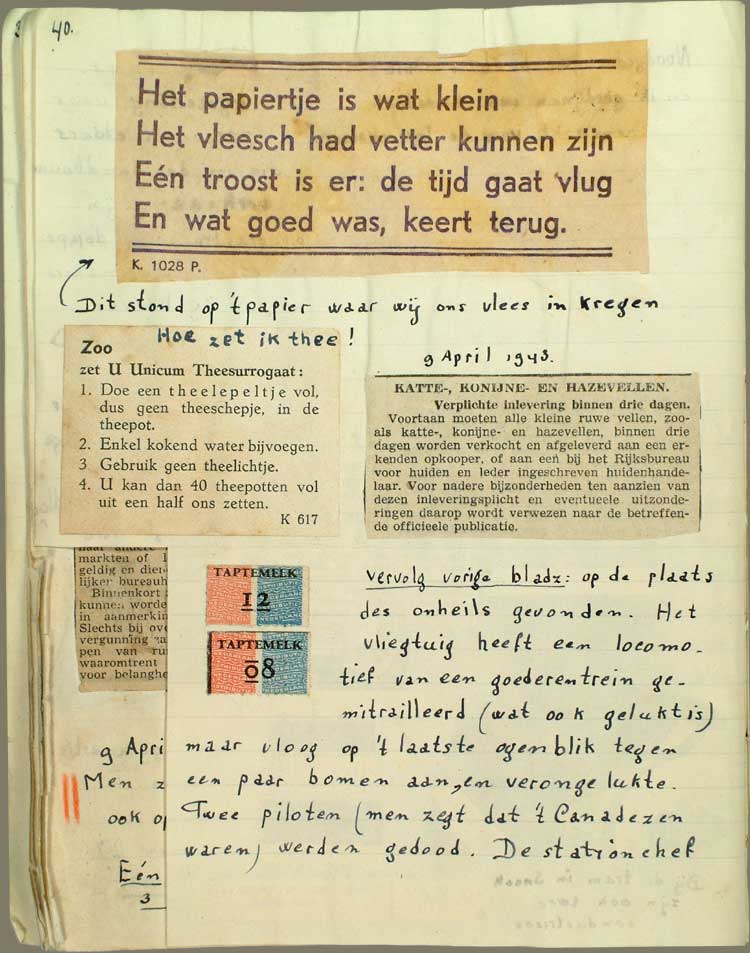 40.
Het papiertje is wat klein
Het vleesch had vetter kunnen zijn
Eén troost is er: de tijd gaat vlug
En wat goed was, keert terug.
K. 1028 P.
Dit stond op 't papier waar wij ons vlees in kregen
Hoe zet ik thee!
Zoo
zet U Unicum Theesurrogaat:
1. Doe een theelepeltje vol,
dus geen theeschepje, in de
theepot.
2. Enkel kokend water bijvoegen.
3 Gebruik geen theelichtje.
4. U kan dan 40 theepotten vol
uit een half ons zetten.
K 617
9 April 1943.
KATTE-, KONIJNE- EN HAZEVELLEN.
Verplichte inlevering binnen drie dagen.
Voortaan moeten alle kleine ruwe vellen, zoo-
als katte-, konijne- en hazevellen, binnen drie
dagen worden verkocht en afgeleverd aan een er-
kenden opkooper, of aan een bij het Rijksbureau
voor huiden en leder ingeschreven huidenhande-
laar. Voor nadere bijzonderheden ten aanzien van
dezen inleveringsplicht en eventueele uitzonde-
ringen daarop wordt verwezen naar de betreffen-
de officieele publicatie.
naar andere
markten of
geldig en dien
lijker bureauh
Binnenkort
kunnen worde
in aanmerkin
Slechts bij ove
vergunning za
pen van ru
waaromtrent
voor belanghe
TAPTEMELK
12
TAPTEMELK
08
vervolg vorige bladz: op de plaats
des onheils gevonden. Het
vliegtuig heeft een locomo-
tief van een goederentrein ge-
mitrailleerd (wat ook gelukt is)
maar vloog op 't laatste ogenblik tegen
een paar bomen aan, en verongelukte.
Twee piloten (men zegt dat 't Canadezen
waren) werden gedood. De stationchef
9 Apri
Men z
ook op
Eén
3